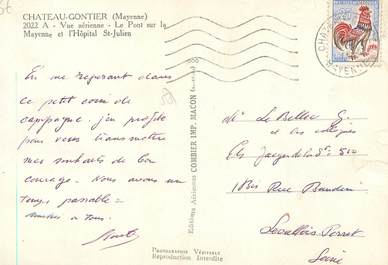 CHATEAU-GONTIER (Mayenne)
2022 A - Vue aérienne - Le Pont sur la
Mayenne et l'Hôpital St-Julien
En me reposant dans
ce petit coin de
campagne j'en profite
pour vous transmettre
mes souhaits de bon
courage. Nous avons un
temps passable =
Amitiés à tous.
Editions Aériennes COMBIER IMP. MACON
PHOTOGRAPHIE VÉRITABLE
Reproduction Interdite
MAYENNE
Mr Le Bellec G.
et les collègues
18bis Rue Baudin
Levallois Perret
Seine